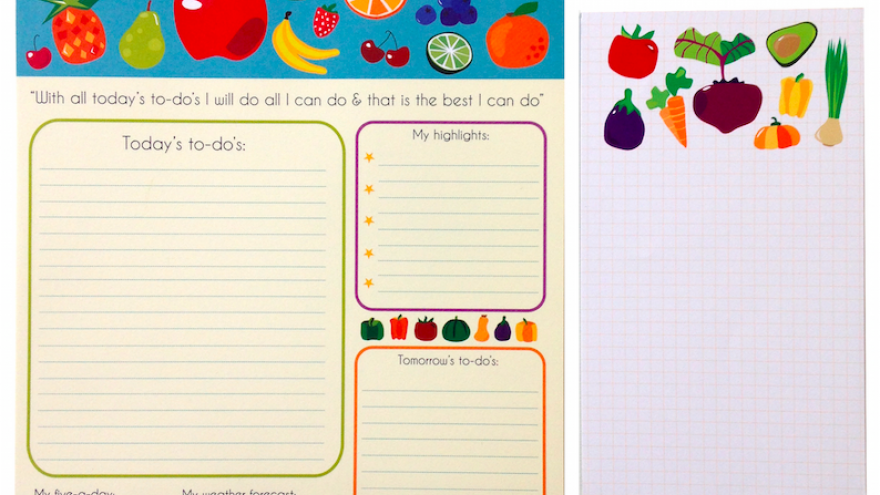 "With all today's to-do's I will do all I can do & that is the best I can do"
Today's to-do's:
My highlights:
Tomorrow's to-do's:
My five-a-day:
My weather forecast: